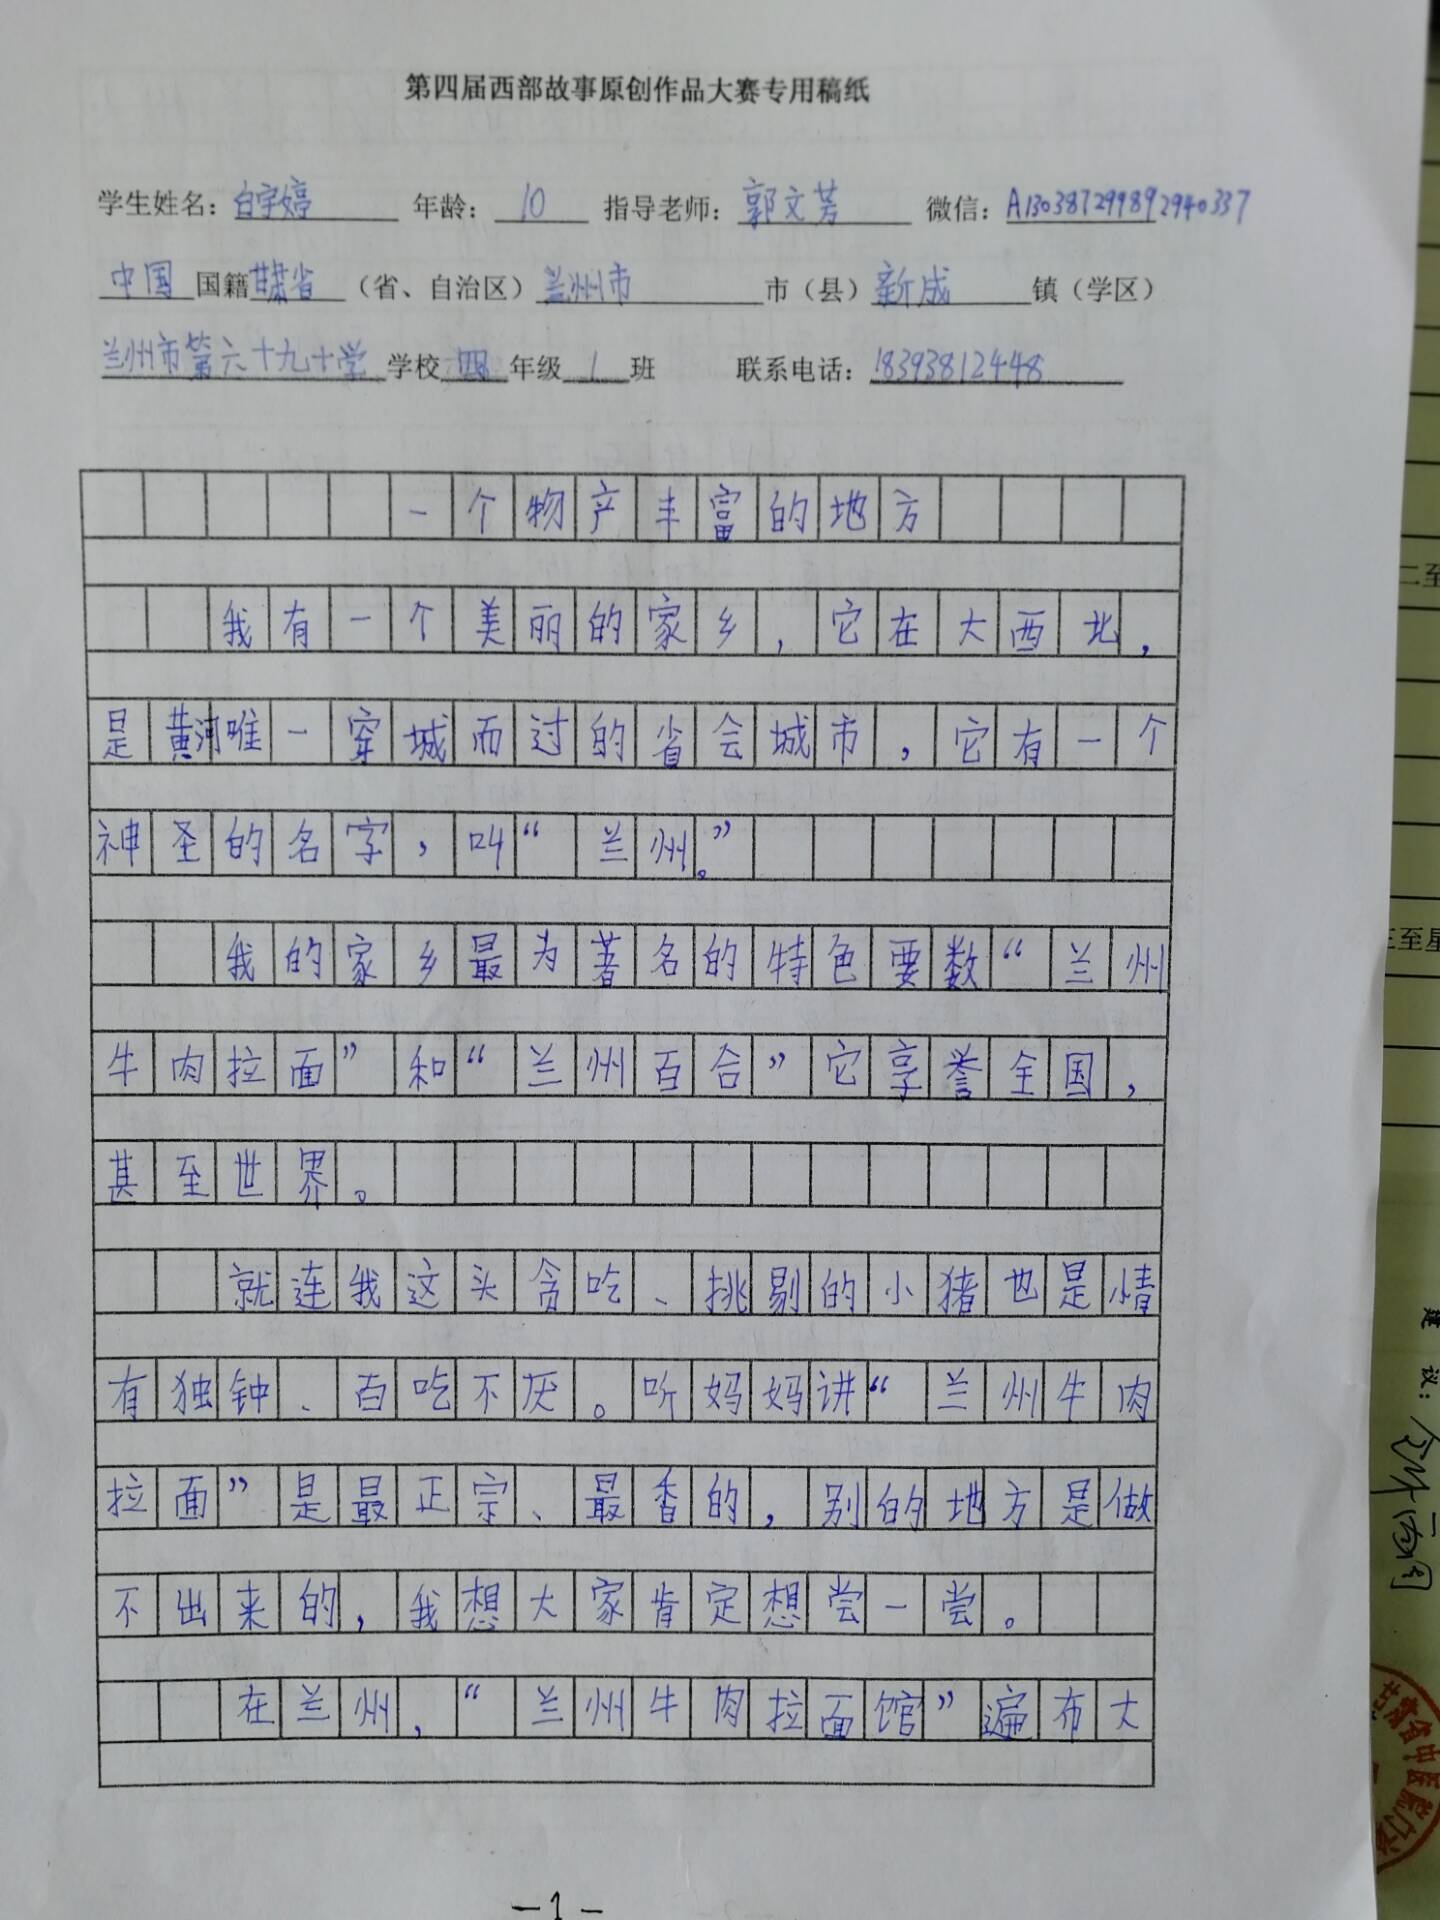 第四届西部故事原创作品大赛专用稿纸
学生姓名：白宇婷 年龄：10 指导老师：郭文芳 微信：A130387299892940337
中国国籍甘肃省（省、自治区）兰州市市（县）新成镇（学区）
兰州市第六十九中学学校四年级1班 联系电话：18393812448
一个物产丰富的地方
我有一个美丽的家乡，它在大西北，
是黄河唯一穿城而过的省会城市，它有一个
神圣的名字，叫“兰州。”
我的家乡最为著名的特色要数“兰州
牛肉拉面”和“兰州百合”它享誉全国，
甚至世界。
就连我这头贪吃、挑剔的小猪也是情
有独钟、百吃不厌。听妈妈讲“兰州牛肉
拉面”是最正宗、最香的，别的地方是做
不出来的，我想大家肯定想尝一尝。
在兰州，“兰州牛肉拉面馆”遍布大
-1-
二至
三至星
建议：
甘肃省中医